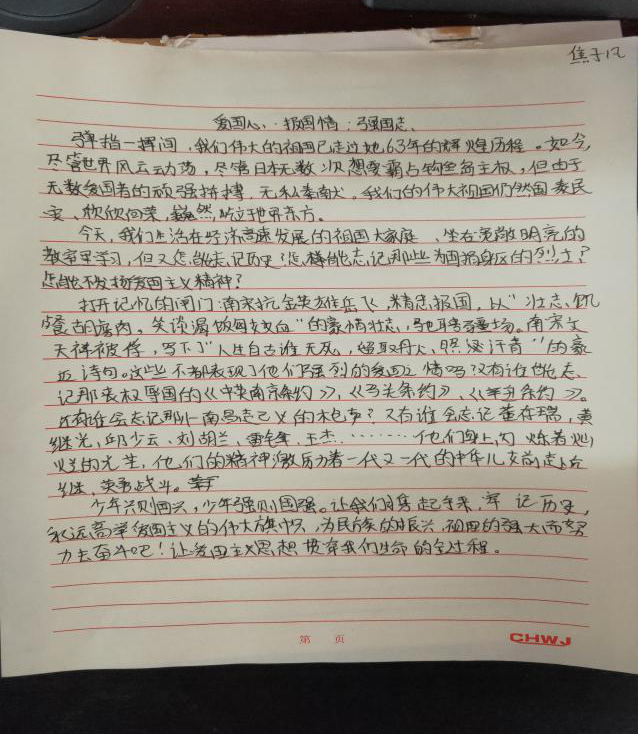 焦子凡
爱国心、报国情、强国志、
弹指一挥间,我们伟大的祖国已走过她63年的辉煌历程。如今,
尽管世界风云动荡,尽管日本无数次想要霸占钓鱼岛主权,但由于
无数爱国者的顽强拼搏,无私奉献。我们的伟大祖国仍然国泰民
安、欣欣向荣,巍然屹立世界东方。
今天,我们生活在经济高速发展的祖国大家庭、坐在宽敞明亮的
教室里学习,但又怎能忘记历史?怎样能忘记那些为国捐躯的烈士?
怎能不发扬爱国主义精神?
打开记忆的闸门:南宋抗金英雄岳飞,精忠报国,以“壮志饥
餐胡虏肉,笑谈渴饮匈奴血”的豪情壮志,驰骋疆场。南宋文
天祥被俘,写下了“人生自古谁无死,留取丹心照汗青”的豪
迈诗句。这些不都表现了他们强烈的爱国之情吗?又有谁能忘
记那丧权辱国的《中英南京条约》,《马关条约》、《辛丑条约》。
又有谁会忘记那南昌起义的枪声?又有谁会忘记董存瑞,黄
继光,邱少云、刘胡兰、雷锋、王杰………他们身上闪烁着灿
烂的光芒,他们的精神激励着一代又一代的中华儿女前赴后
继,英勇战斗。
少年兴则国兴,少年强则国强。让我们携起手来,牢记历史,
永远高举爱国主义的伟大旗帜,为民族的振兴,祖国的强大而努
力去奋斗吧!让爱国主义思想贯穿我们生命的全过程。
第 页
CHWJ